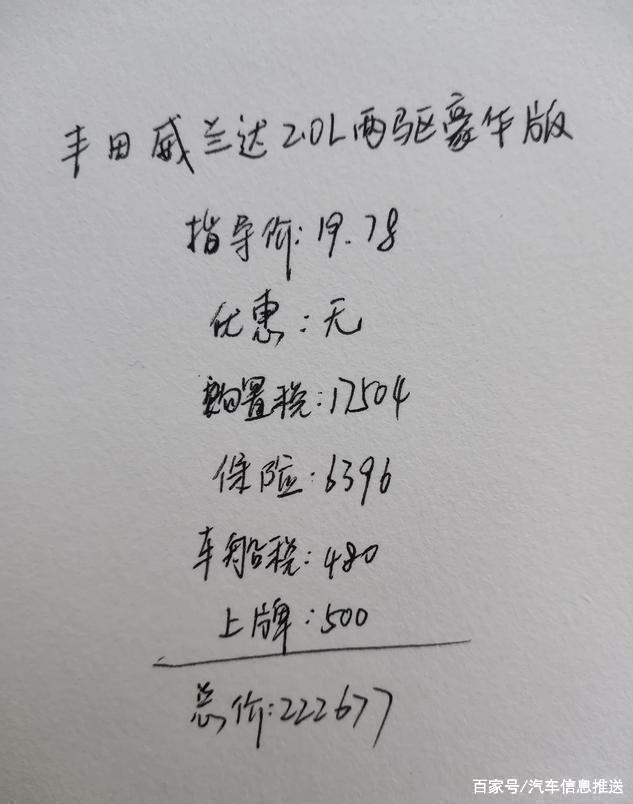 丰田威兰达2.0L两驱豪华版
指导价:19.78
优惠:无
购置税:17504
保险:6396
车船税:480
上牌:500
总价:222677
百家号/汽车信息推送